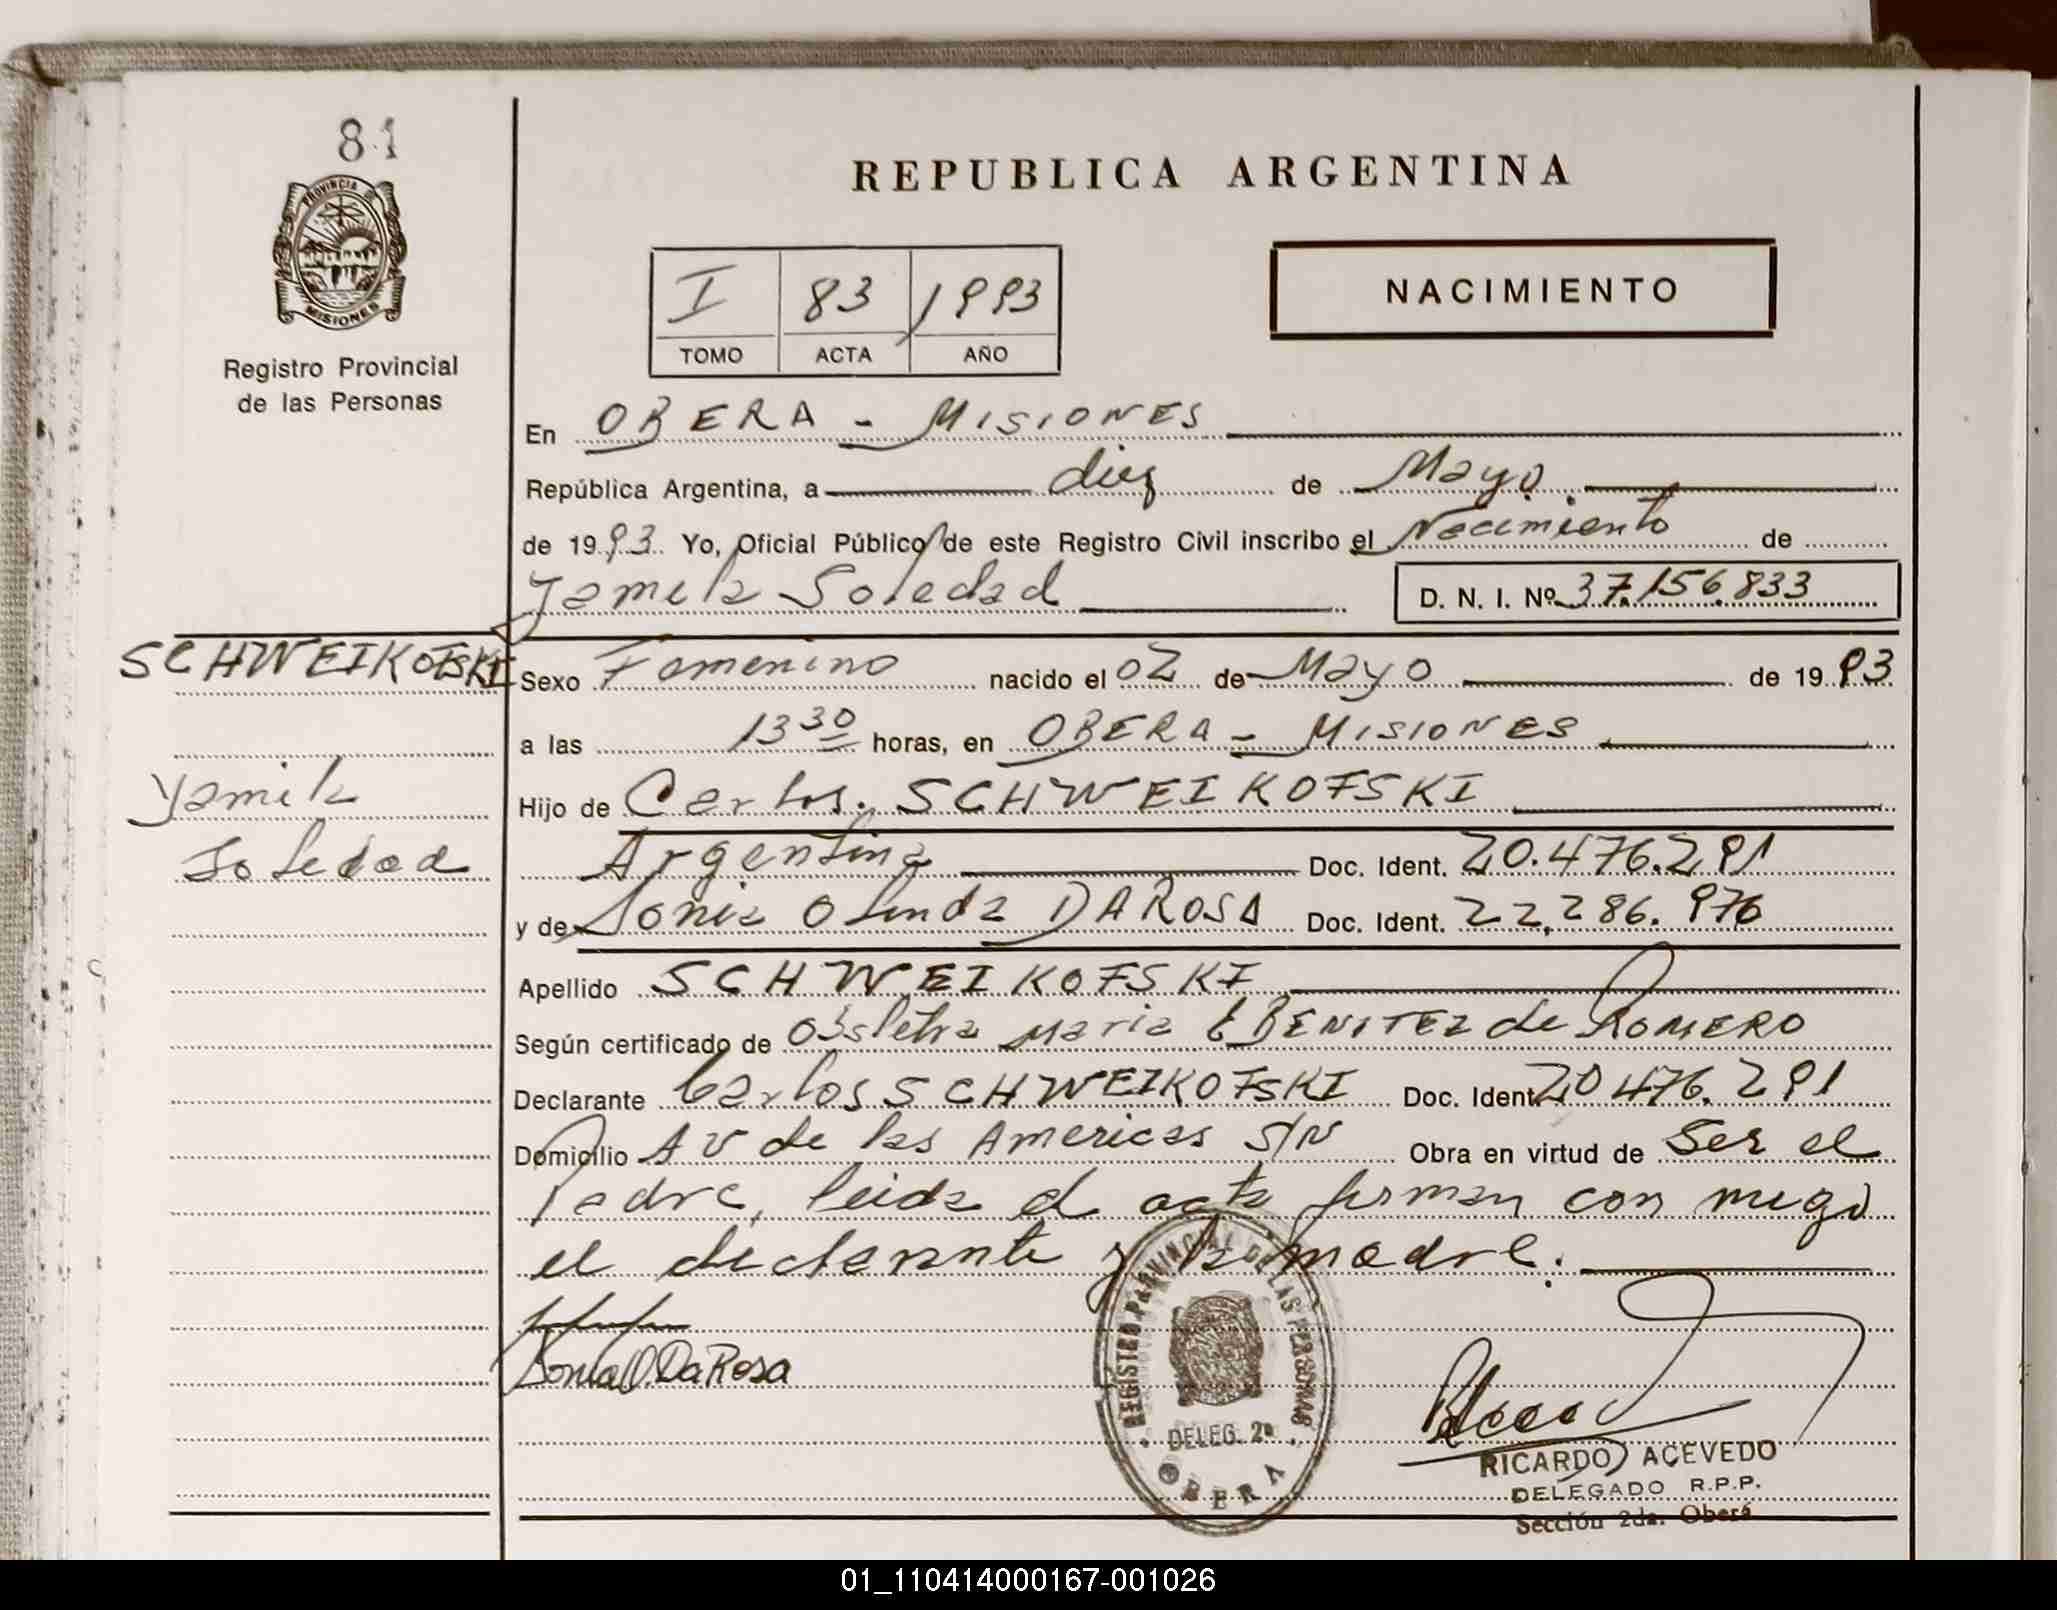 81
PROVINCIA D
MISIONES
Registro Provincial
de las Personas
REPUBLICA ARGENTINA
I 83 1993
TOMO ACTA AÑO
NACIMIENTO
En OBERA - MISIONES
República Argentina, a diez de Mayo
de 1993. Yo, Oficial Público de este Registro Civil inscribo el Nacimiento de
Yamila Soledad D. N. I. Nº 37.156.833
SCHWEIKOFSKI
Yamila
Soledad
Sexo Femenino nacido el 02 de Mayo de 1993
a las 13 30 horas, en OBERA - MISIONES
Hijo de Carlos. SCHWEIKOFSKI
Argentina Doc. Ident. 20.476.291
y de Sonia Olinda DA ROSA Doc. Ident. 22,286.976
Apellido SCHWEIKOFSKI
Según certificado de Obstetra Maria E BENITEZ de ROMERO
Declarante Carlos SCHWEIKOFSKI Doc. Ident. 20476.291
Domicilio AV de las Americas S/N Obra en virtud de Ser el
Padre, leida el acta firman con migo
el declarante y la madre.
Sonia O. Da Rosa
REGISTRO PROVINCIAL DE LAS PERSONAS
DELEG. 2a
OBERA
RICARDO ACEVEDO
DELEGADO R.P.P.
Sección 2da. Oberá
01_110414000167-001026